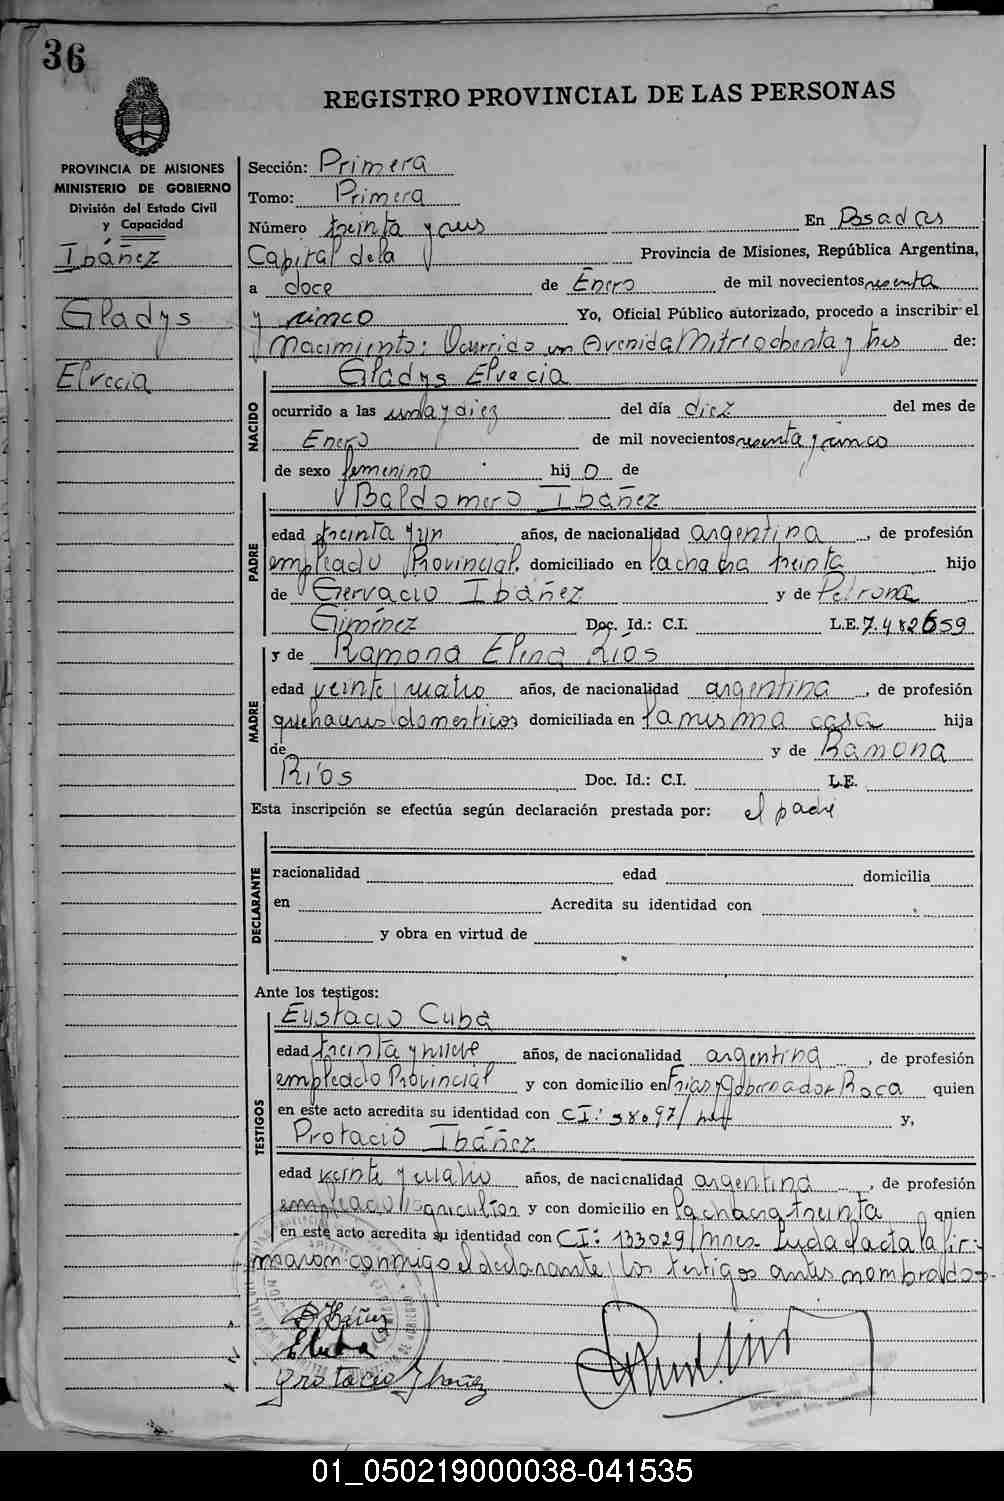 36
REGISTRO PROVINCIAL DE LAS PERSONAS
PROVINCIA DE MISIONES
MINISTERIO DE GOBIERNO
División del Estado Civil
y Capacidad
Ibáñez
Gladys
Elvecia
Sección: Primera
Tomo: Primera
Número treinta y seis En Posadas
Capital de la Provincia de Misiones, República Argentina,
a doce de Enero de mil novecientos sesenta
y cinco Yo, Oficial Público autorizado, procedo a inscribir el
Nacimiento: Ocurrido en Avenida Mitre ochenta y tres de:
Gladys Elvecia
NACIDO
ocurrido a las una y diez del día diez del mes de
Enero de mil novecientos sesenta y cinco
de sexo femenino hij o de
Baldomero Ibáñez
PADRE
edad treinta y un años, de nacionalidad argentina, de profesión
empleado Provincial, domiciliado en la chacra treinta hijo
de Gervacio Ibáñez y de Petrona
Giménez Doc. Id.: C.I. L.E. 7.482659
y de Ramona Elena Ríos
MADRE
edad veinte y cuatro años, de nacionalidad argentina, de profesión
quehaceres domesticos domiciliada en la misma casa hija
de y de Ramona
Ríos Doc. Id.: C.I. L.E.
Esta inscripción se efectúa según declaración prestada por: el padre
DECLARANTE
nacionalidad edad domicilia
en Acredita su identidad con
y obra en virtud de
Ante los testigos:
Eustacio Cuba
TESTIGOS
edad treinta y nueve años, de nacionalidad argentina, de profesión
empleado Provincial y con domicilio en Frias y Gobernador Roca quien
en este acto acredita su identidad con CI: y,
Protacio Ibáñez
edad veinte y cuatro años, de nacionalidad argentina, de profesión
empleado agricultor y con domicilio en la chacra treinta quien
en este acto acredita su identidad con CI: 133029/mnes. Leida el acta la fir-
maron conmigo el declarante y los testigos antes nombrados-
B Ibáñez
E Cuba
Protacio Ibañez
01_050219000038-041535